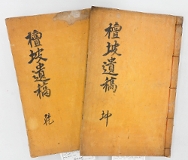 檀坡遺稿
乾
檀坡遺稿
坤